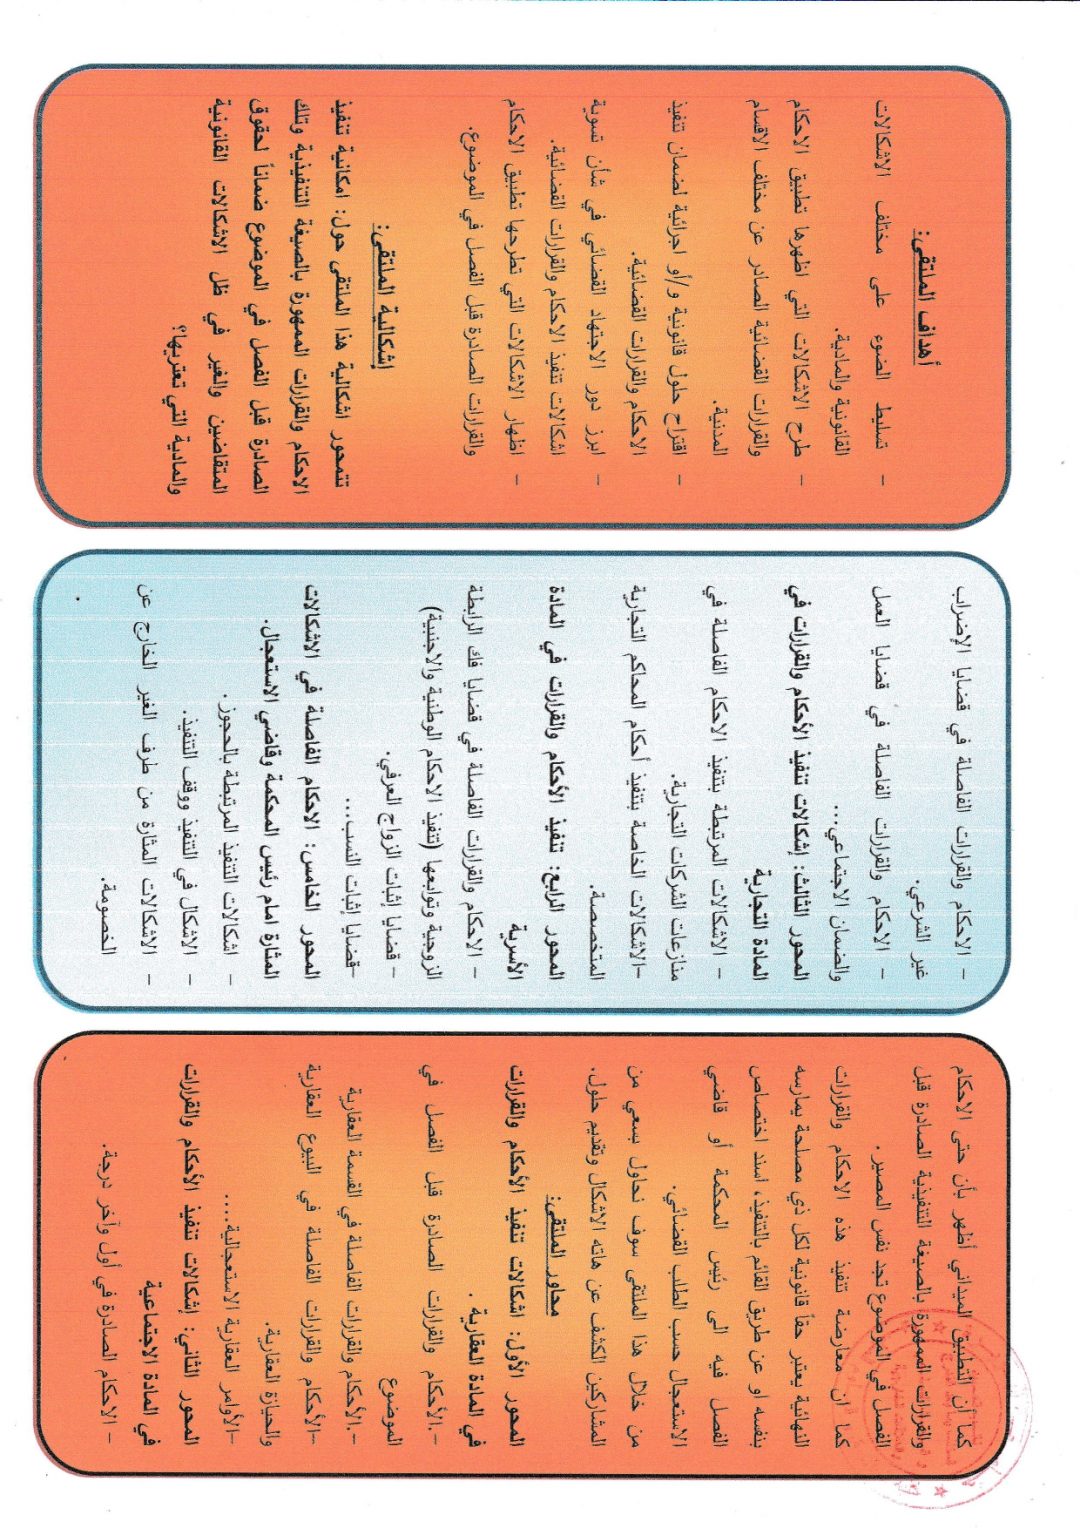 كما أن التطبيق الميداني أظهر بأن حتى الاحكام
والقرارات الممهورة بالصيغة التنفيذية الصادرة قبل
الفصل في الموضوع تجد نفس المصير.
كما ان معارضة تنفيذ هذه الاحكام والقرارات
النهائية يعتبر حقاً قانونية لكل ذي مصلحة يمارسه
بنفسه او عن طريق القائم بالتنفيذ، اسند اختصاص
الفصل فيه الى رئيس المحكمة أو قاضي
الاستعجال حسب الطلب القضائي.
من خلال هذا الملتقى سوف نحاول بسعي من
المشاركين الكشف عن هاته الاشكال وتقديم حلول.
محاور الملتقى:
المحور الأول: اشكالات تنفيذ الأحكام والقرارات
في المادة العقارية .
- .الأحكام والقرارات الصادرة قبل الفصل في
الموضوع
- .الأحكام والقرارات الفاصلة في القسمة العقارية
-الأحكام والقرارات الفاصلة في البيوع العقارية
والحيازة العقارية.
-الأوامر العقارية الاستعجالية....
المحور الثاني: إشكالات تنفيذ الأحكام والقرارات
في المادة الاجتماعية
- الاحكام الصادرة في أول وآخر درجة.
- الاحكام والقرارات الفاصلة في قضايا الإضراب
غير الشرعي.
- الاحكام والقرارات الفاصلة في قضايا العمل
والضمان الاجتماعي...
المحور الثالث: إشكالات تنفيذ الأحكام والقرارات في
المادة التجارية
- الاشكالات المرتبطة بتنفيذ الاحكام الفاصلة في
منازعات الشركات التجارية.
-الاشكالات الخاصة بتنفيذ أحكام المحاكم التجارية
المتخصصة.
المحور الرابع: تنفيذ الأحكام والقرارات في المادة
الأسرية
- الاحكام والقرارات الفاصلة في قضايا فك الرابطة
الزوجية وتوابعها (تنفيذ الاحكام الوطنية والاجنبية)
- قضايا إثبات الزواج العرفي.
-قضايا إثبات النسب...
المحور الخامس: الاحكام الفاصلة في الاشكالات
المثارة امام رئيس المحكمة وقاضي الاستعجال.
- اشكالات التنفيذ المرتبطة بالحجوز .
- الاشكال في التنفيذ ووقف التنفيذ.
- الاشكالات المثارة من طرف الغير الخارج عن
الخصومة.
أهداف الملتقى:
- تسليط الضوء على مختلف الاشكالات
القانونية والمادية.
- طرح الاشكالات التي اظهرها تطبيق الاحكام
والقرارات القضائية الصادر عن مختلف الاقسام
المدنية.
- اقتراح حلول قانونية و/أو اجرائية لضمان تنفيذ
الاحكام والقرارات القضائية.
- ابرز دور الاجتهاد القضائي في شأن تسوية
اشكالات تنفيذ الاحكام والقرارات القضائية.
- اظهار الاشكالات التي تطرحها تطبيق الاحكام
والقرارات الصادرة قبل الفصل في الموضوع.
إشكالية الملتقى:
تتمحور اشكالية هذا الملتقى حول: امكانية تنفيذ
الاحكام والقرارات الممهورة بالصيغة التنفيذية وتلك
الصادرة قبل الفصل في الموضوع ضماناً لحقوق
المتقاضين والغير في ظل الاشكالات القانونية
والمادية التي تعتريها؟